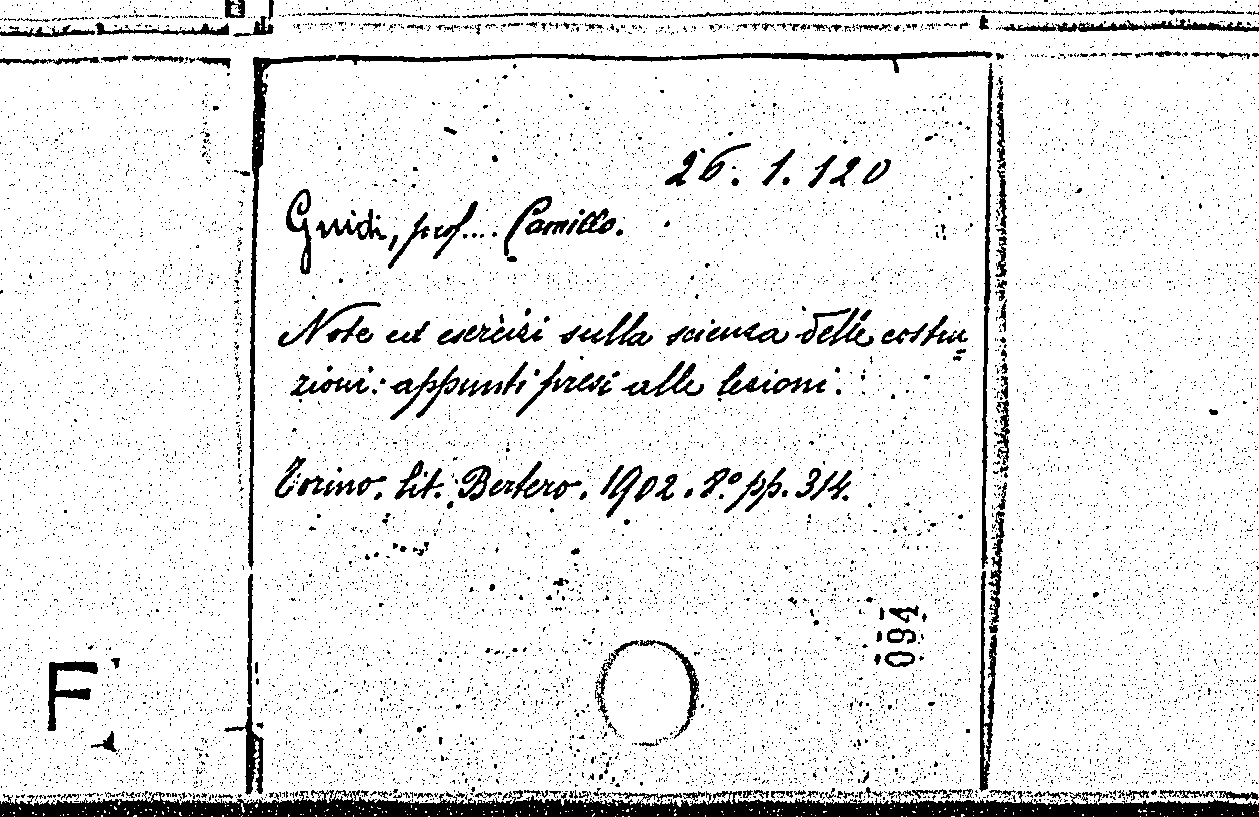 26. 1. 120
Guidi, prof.... Camillo.
Note ed esercizi sulla scienza delle costru=
zioni: appunti presi alle lezioni.
Torino. Lit. Bertero. 1902. 8.° pp. 314.
094
F